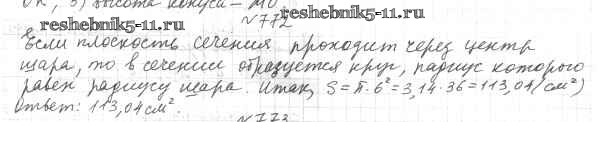 ОК, 3) высота конуса – МО
reshebnik5-11.ru reshebnik5-11.ru
№772
Если плоскость сечения проходит через центр
шара, то в сечении образуется круг, радиус которого
равен радиусу шара. Итак, S = π · 6² = 3,14 · 36 = 113,04 (см²)
Ответ: 113,04 см².
№773